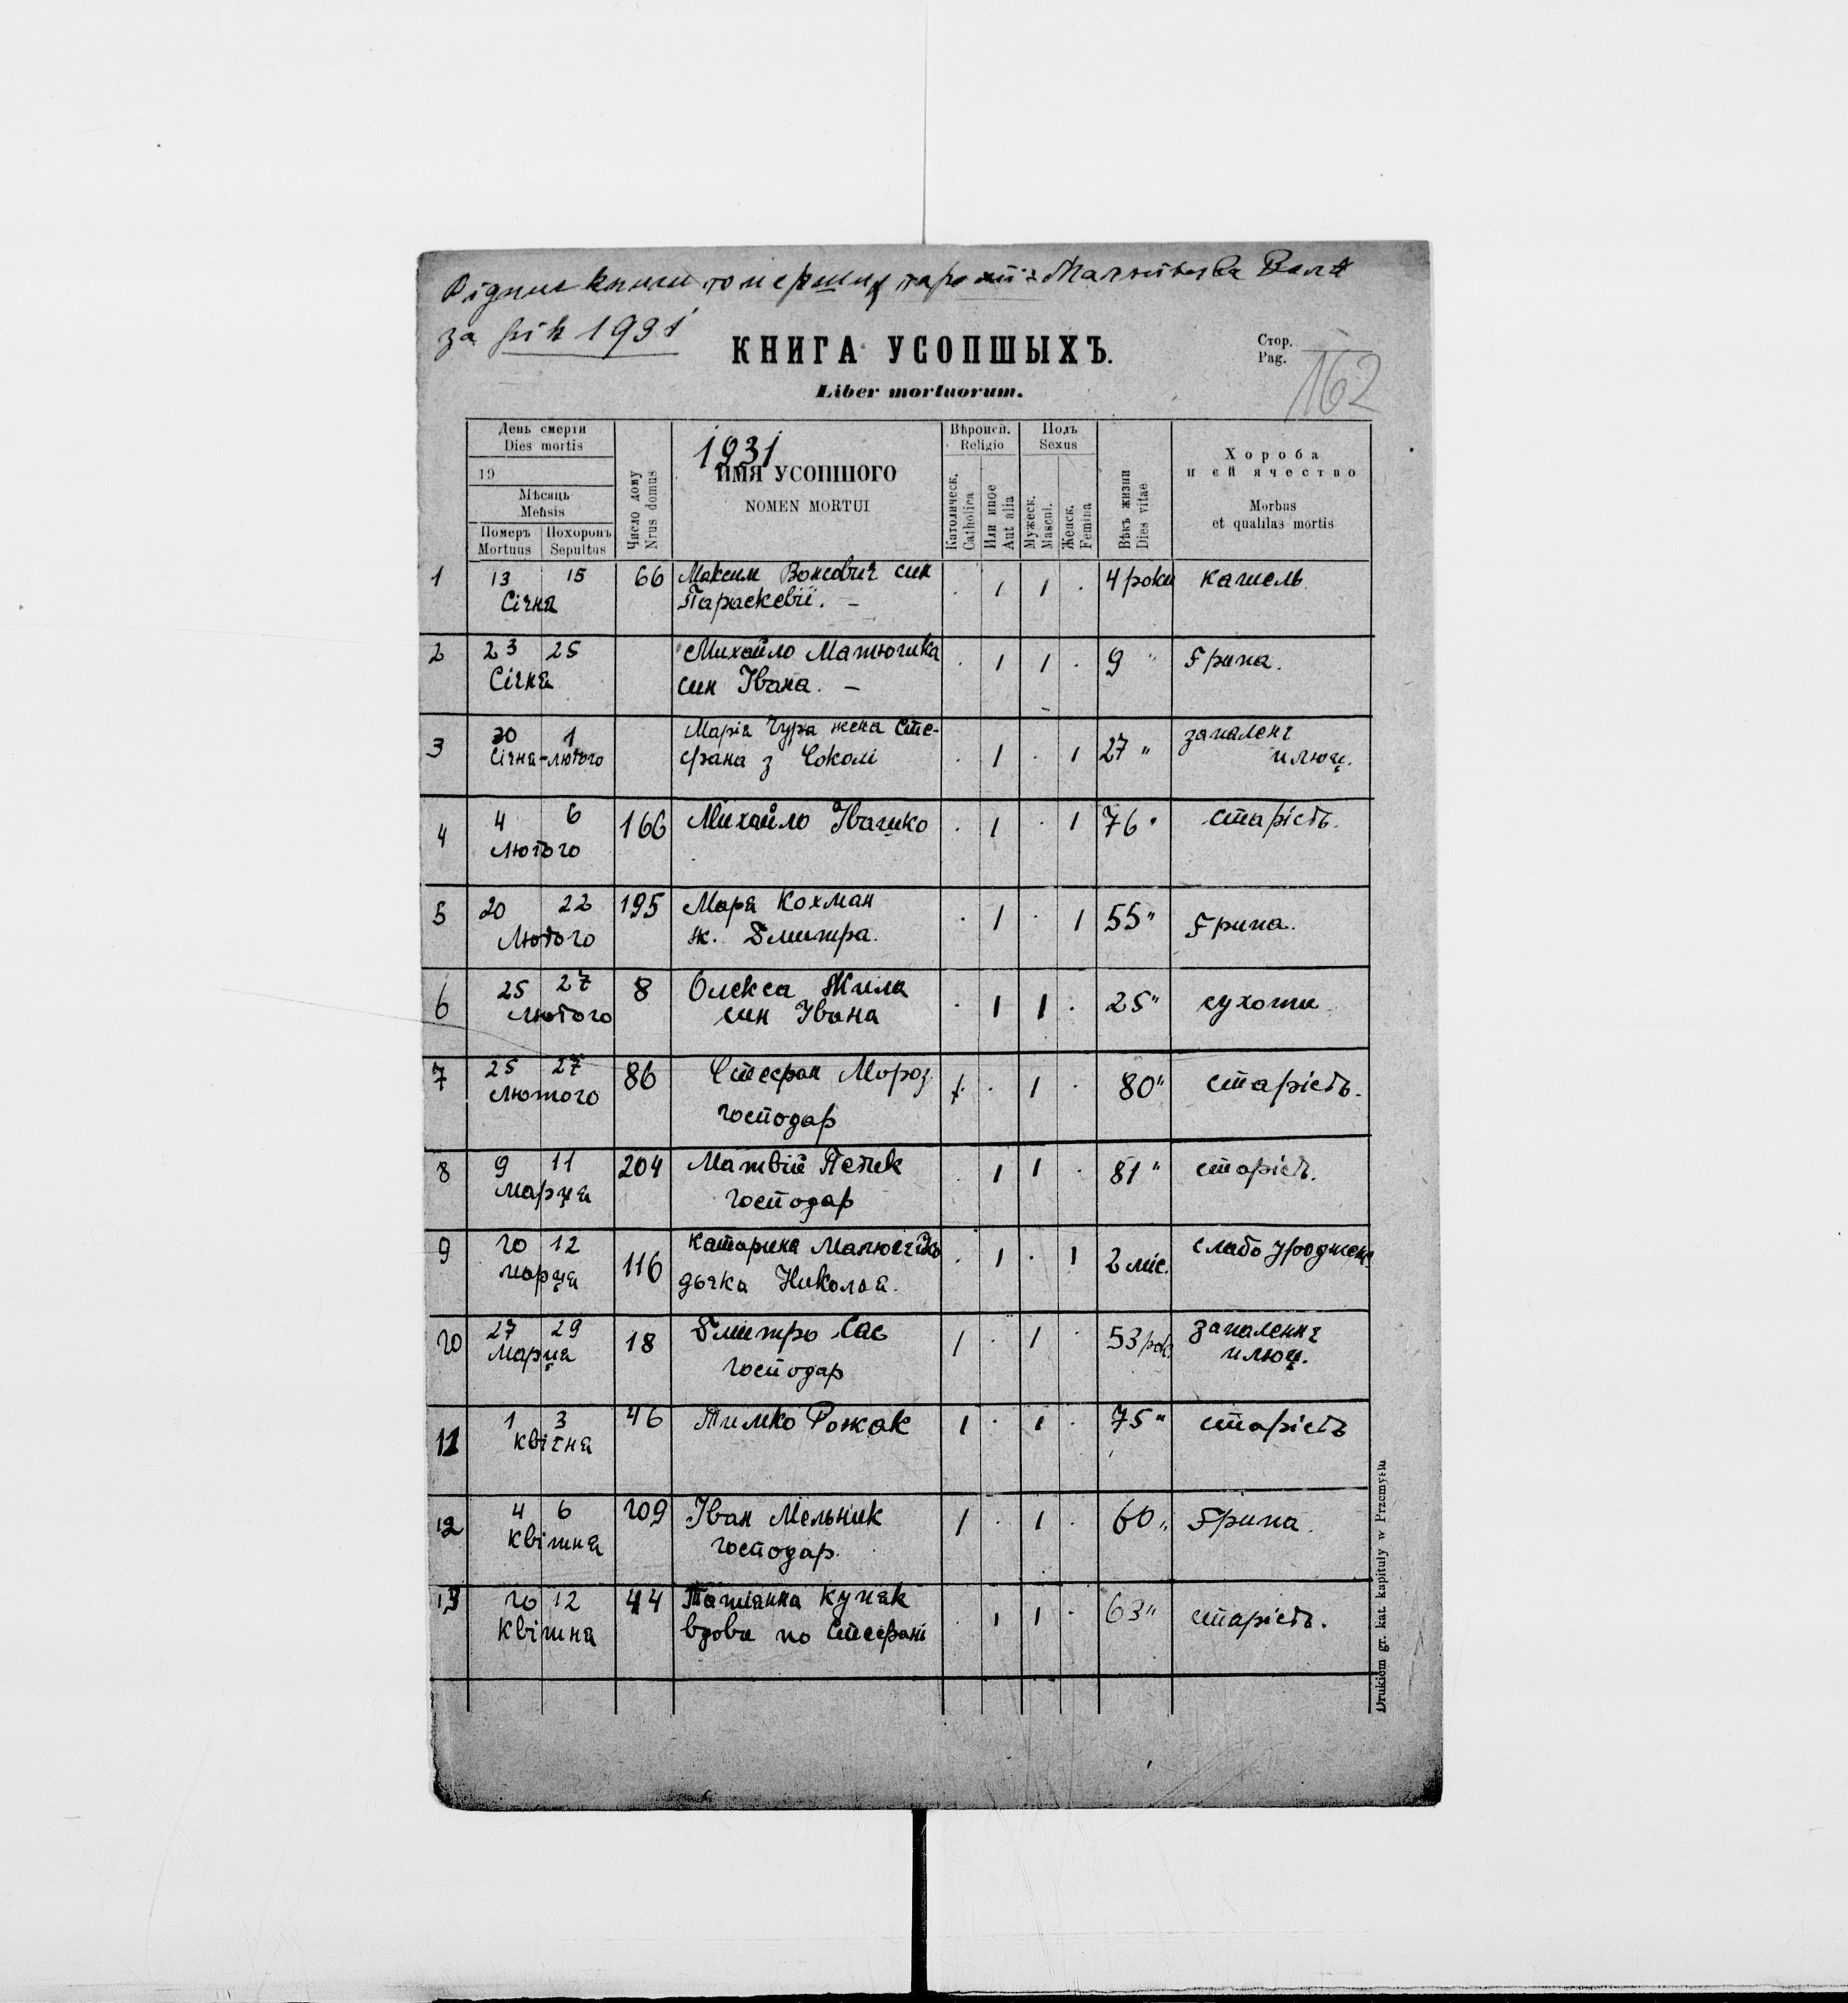 за рік 1931
КНИГА УСОПШЫХЪ.
Liber mortuorum.
Стор.
Pag.
162
День смерти
Dies mortis
19
Мѣсяць
Mensis
Померъ Похоронъ
Mortuus Sepultus
Число дому
Nrus domus
1931
ИМЯ УСОПШОГО
NOMEN MORTUI
Вѣроисп.
Religio
Католическ.
Catholica
Или иное
Aut alia
Полъ
Sexus
Мужеск.
Mascul.
Женск.
Femina
Вѣкъ жизни
Dies vitae
Хороба
и ей ячество
Morbus
et qualitas mortis
1 13 15 66 Максим Вонсович син . 1 1 . 4 роки кашель
Січня Параскевії. –
2 23 25 Михайло Матючика . 1 1 . 9 " Ґрипа.
Січня син Івана. –
3 30 1 Марія Чура жена Сте- . 1 . 1 27 " запаленє
Січня-лютого фана з Соколі плюц.
4 4 6 166 Михайло Івашко . 1 . 1 76 " старість.
Лютого
5 20 22 195 Мар'я Кохман . 1 . 1 55 " Ґрипа.
Лютого ж. Дмитра.
6 25 27 8 Олекса Жила . 1 1 . 25 " сухоти
Лютого син Івана
7 25 27 86 Стефан Мороз 1 . 1 . 80 " старість.
Лютого господар
8 9 11 204 Матвій Петик . 1 1 . 81 " старість.
Марця господар
9 10 12 116 Катарина . 1 . 1 2 міс. слабо уроджене
марця дочка Николая.
10 27 29 18 Дмитро Сас 1 . 1 . 53 рок. запаленнє
Марця господар плюц.
11 1 3 46 Тимко Рожак 1 . 1 . 75 " старість
Квітня
12 4 6 209 Іван Мельник 1 . 1 . 60 " Ґрипа.
Квітня господар.
13 10 12 44 Татіанна Купяк . 1 1 . 63 " старість.
Квітня вдова по Стефані
Drukiem gr. kat. kapituły w Przemyślu